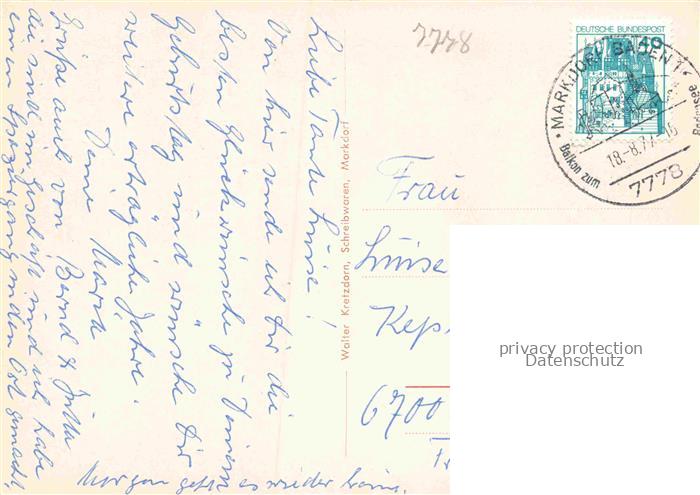 7778
Liebe Tante Luise!
Von hier sende ich Dir die
besten Glückwünsche zu Deinem
Geburtstag und wünsche Dir
weitere erträgliche Jahre.
Deine Maria
Grüße auch von Bernd & Jutta
die sind im Geschäft und ich habe
einen Spaziergang in den Ort gemacht.
Morgen geht es wieder heim.
Walter Kretzdorn, Schreibwaren, Markdorf
DEUTSCHE BUNDESPOST
40
MARKDORF BADEN 1
Balkon zum Bodensee
18.-8.77
7778
Frau
Luise
Kep
6700
privacy protection
Datenschutz